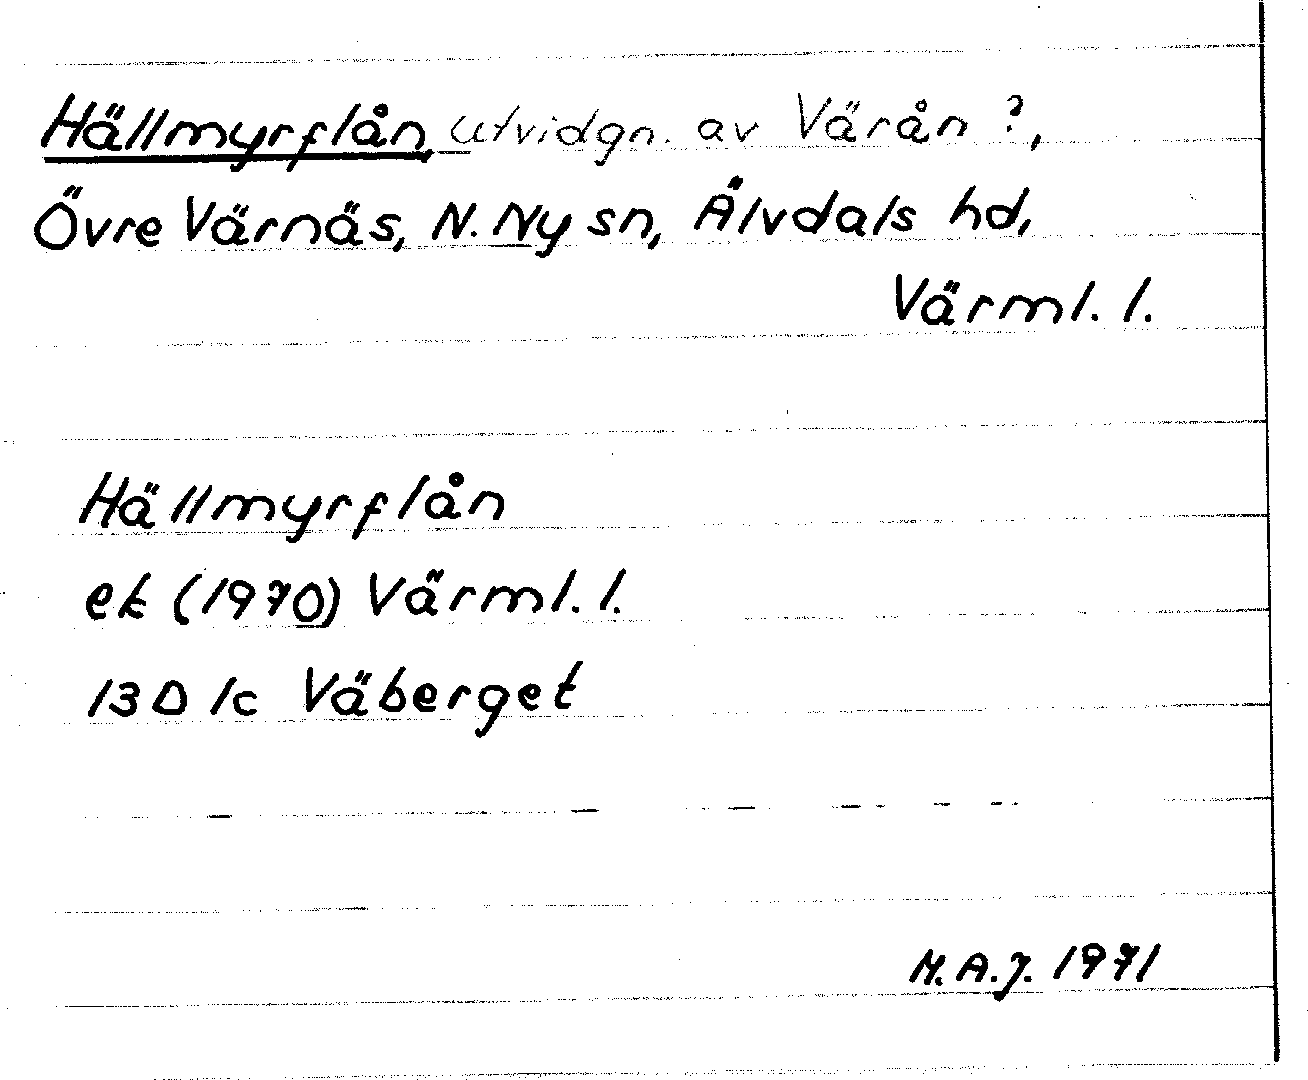 Hällmyrflån, utvidgn. av Värån ?,
Övre Värnäs, N. Ny sn, Älvdals hd,
Värml. l.
Hällmyrflån
ek (1970) Värml. l.
13 D 1c Väberget
M.A.J. 1971